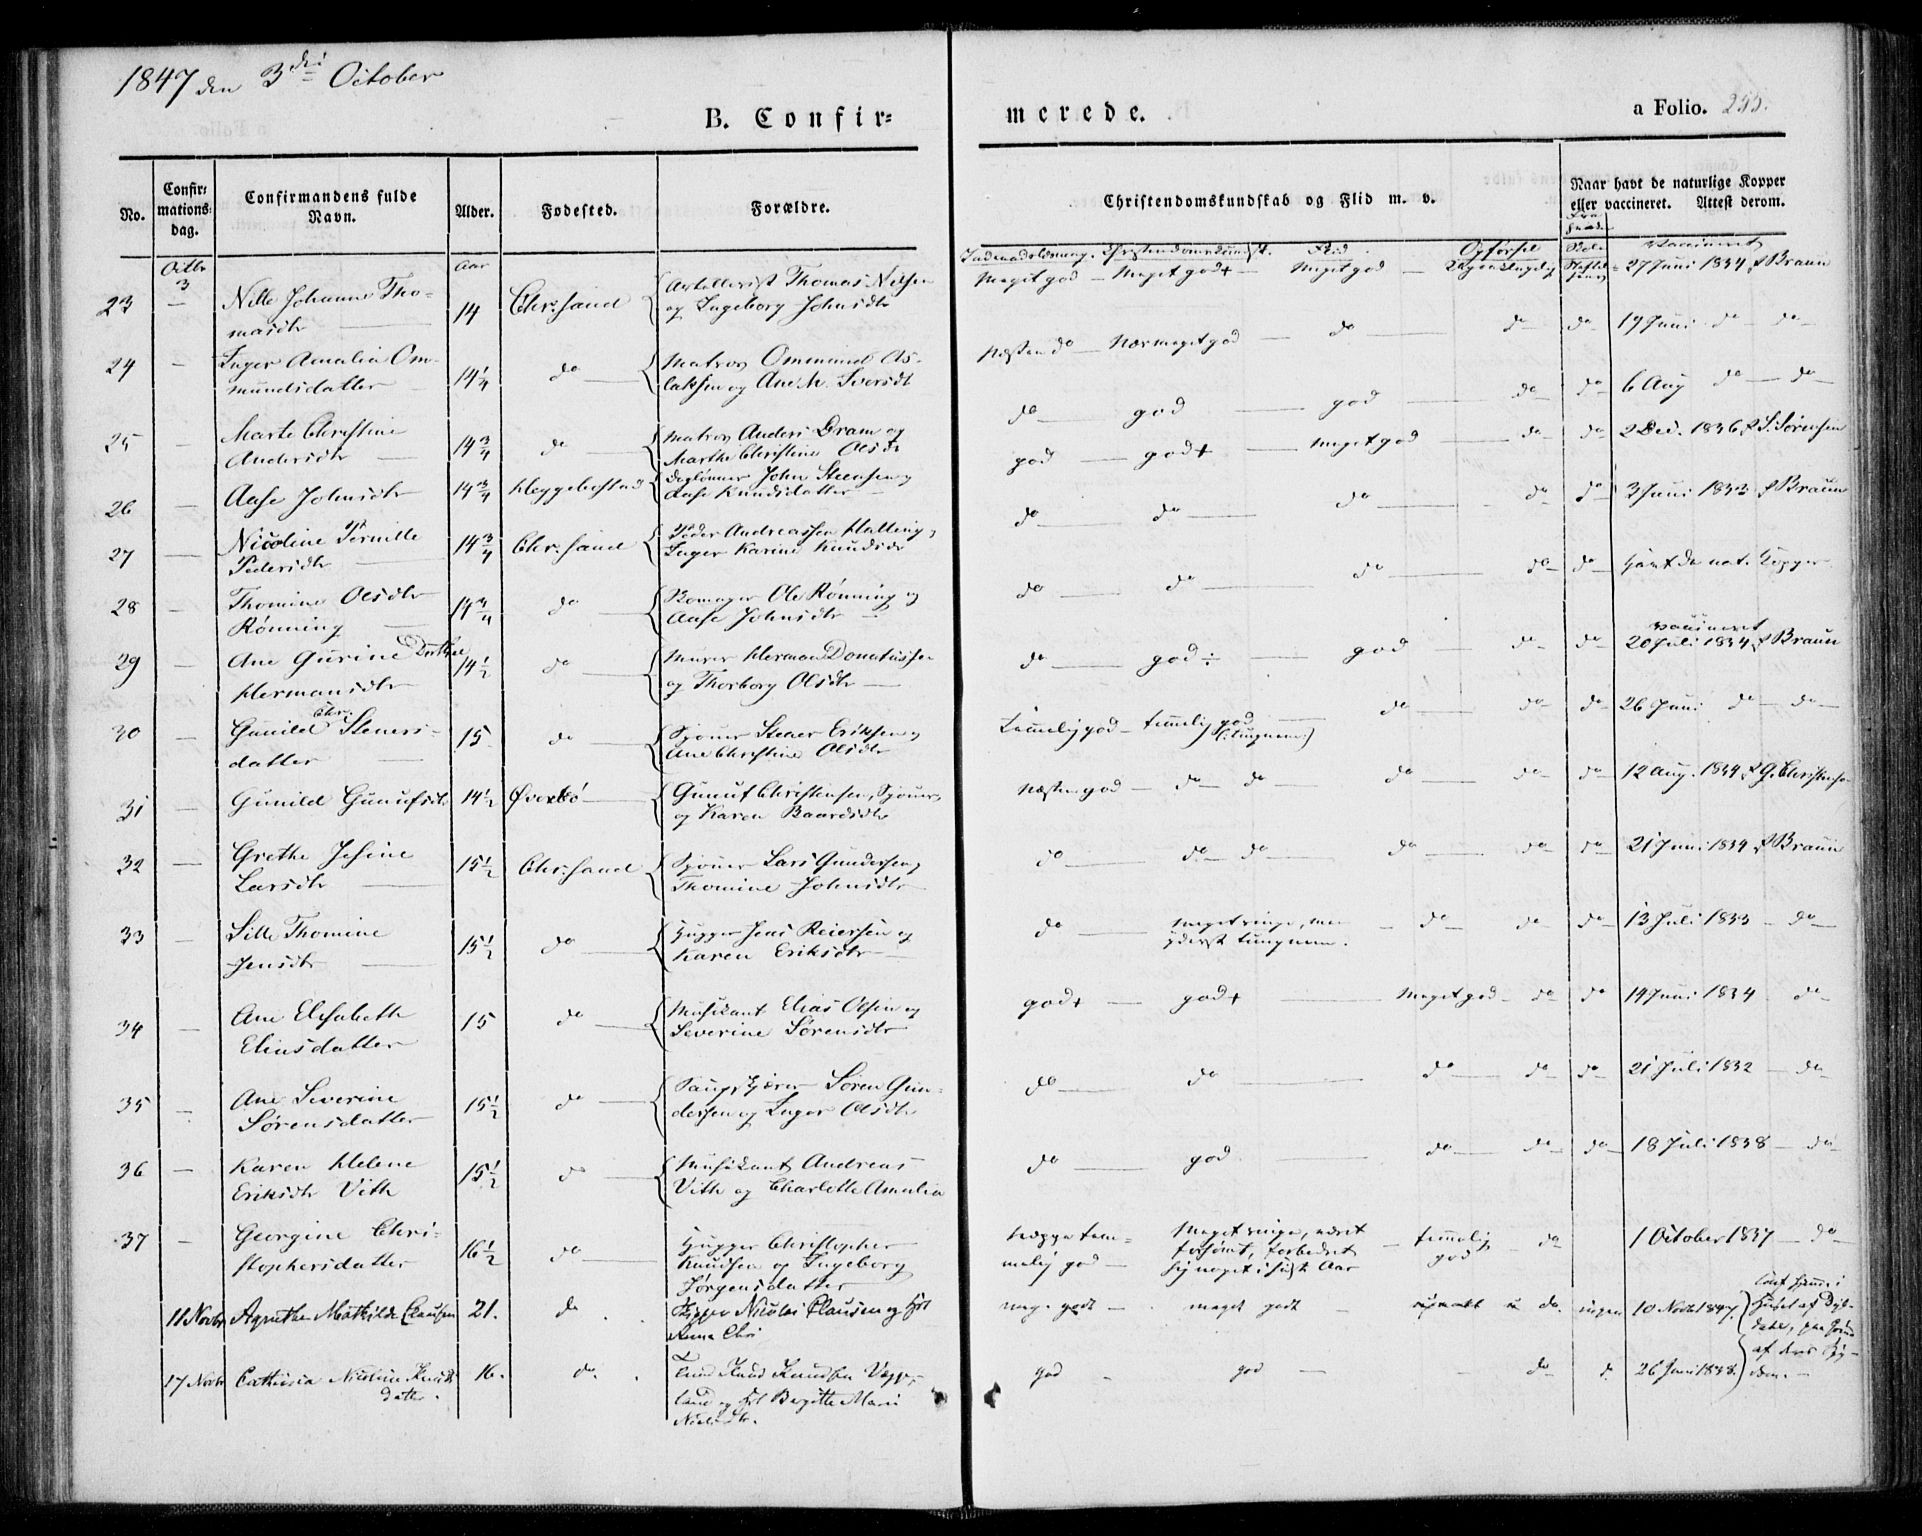 1847 den 3die October
B. Confirmerede.
a Folio. 255.
No. Confirmations-dag. Confirmandens fulde Navn. Alder. Fødested. Forældre. Christendomskundskab og Flid m. v. Naar havt de naturlige Kopper eller vaccineret. Attest derom.
Indenadslæsning. Christendomskundsk. Flid. Opførsel
Octbr Aar vaccineret
23 3 Nille Johanne Tho- 14 Chr.sand Artillerist Thomas Nilsen Meget god Meget god + Meget god 27 Juni 1834 Braun
masdtr og Ingeborg Johnsdtr
24 Inger Amalia Om- 14 1/4 do Matros Ommund As- næsten do nær meget god do do do 19 Juni do do
mundsdatter laksen og Ane M. Iversdt
25 Marte Christine 14 3/4 do Matros Anders Dram og do god god do do 6 Aug do do
Andersdtr Marthe Christine Olsdtr
26 Aase Johnsdtr 14 3/4 Heggebostad Daglønner John Steensen og god god + Meget god do do 2 Dec. 1836 S. Sørensen
Aase Knudsdatter
27 Nicoline Pernille 14 3/4 Chr.sand Peder Andreassen Halling, do do do do do 3 Juni 1833 Braun
Pedersdtr Inger Karine Knudsdtr
28 Thomine Olsdtr 14 3/4 do Ole Rønning og do do do do do havt de nat. Kopper
Rønning Aase Johnsdtr
29 Ane Gurine Dorthea 14 1/2 do Murer Herman Donatussen do god ÷ god do do vaccineret 20 Juli 1834 Braun
Hermansdtr og Thorborg Olsdtr
30 Gunild Chr. Steners- 15 do Sjømer Stener Eriksen og temmelig god temmelig god do do do 26 Juni do do
datter Ane Christine Olsdtr (tungnem)
31 Gunild Gunufsdtr 14 1/2 Øvrebø Gunuf Christensen, Sjømer, næsten god do do do do do 12 Aug. 1834 G. Christensen
og Karen Baardsdtr
32 Grethe Jesine 15 1/2 Chr.sand Sjømer Lars Gundersen og do do do do do do 21 Juni 1834 Braun
Larsdtr Thomine Johnsdtr
33 Sille Thomine 15 1/2 do Hugger Jens Reiersen og do meget ringe, men do do do 13 Juli 1833 do
Jensdtr Karen Eriksdtr yderst tungnem.
34 Ane Elisabeth 15 do Musikant Elias Olsen og god + god + Meget god do do 14 Juni 1834 do
Eliasdatter Severine Sørensdtr
35 Ane Severine 15 1/2 do Søren Gun- do do do do do 21 Juli 1832 do
Sørensdatter dersen og Inger Olsdtr
36 Karen Helene 15 1/2 do Musikant Andreas do god do do do 18 Juli 1838 do
Eriksdtr Vith Vith og Charlotte Amalia
37 Georgine Chri- 16 1/2 do Hugger Christopher neppe tem- Meget ringe, været temmelig do 1 October 1837 do
stophersdatter Knudsen og Ingeborg melig god forsømt, forbedret god
Jørgensdatter sig noget i sidste Aar
11 Novbr Agnethe Mathilde Clausen 21. do Skipper Nicolai Clausen og meg. godt meget godt do. ingen 10 Novbr 1847. Conf. hjemme i
Huset af
17 Novbr Cathrina Nicoline Knuds 16. do. Knud Knudsen god god do d. 26 Juni 1838.
datter. land og Birgitte Marie